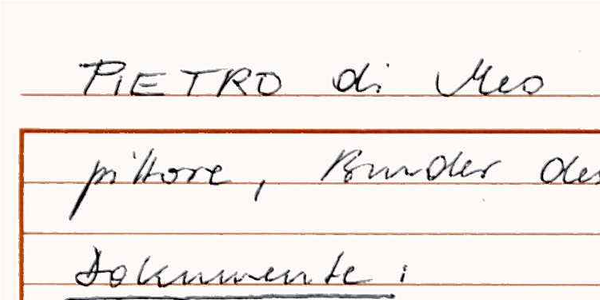 PIETRO di Meo
pittore, Bruder des
Dokumente: